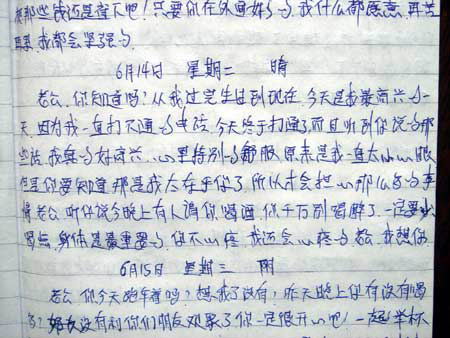 我那些钱还是省下吧！只要你在外面好的，我什么都愿意，再苦
再累，我都会坚强的
6月14日 星期二 晴
老公，你知道吗？从我过完生日到现在，今天是我最高兴的一
天，因为我一直打不通的电话，今天终于打通了，而且听到你说的那
些话，我真的好高兴，心里特别的舒服，原来是我一直太小心眼
但是你要知道那是我太在乎你了，所以才会担心那么多的事
情，老公，听你说今晚上有人请你喝酒，你千万别喝醉了，一定要少
喝点，身体是最重要的，你不心疼，我还会心疼的，老公，我想你
6月15日 星期三 阴
老公，你今天跑车着吗？想我了没有，昨天晚上你有没有喝
多？ 没有利 你们朋友 你一定很开心吧！一起举杯